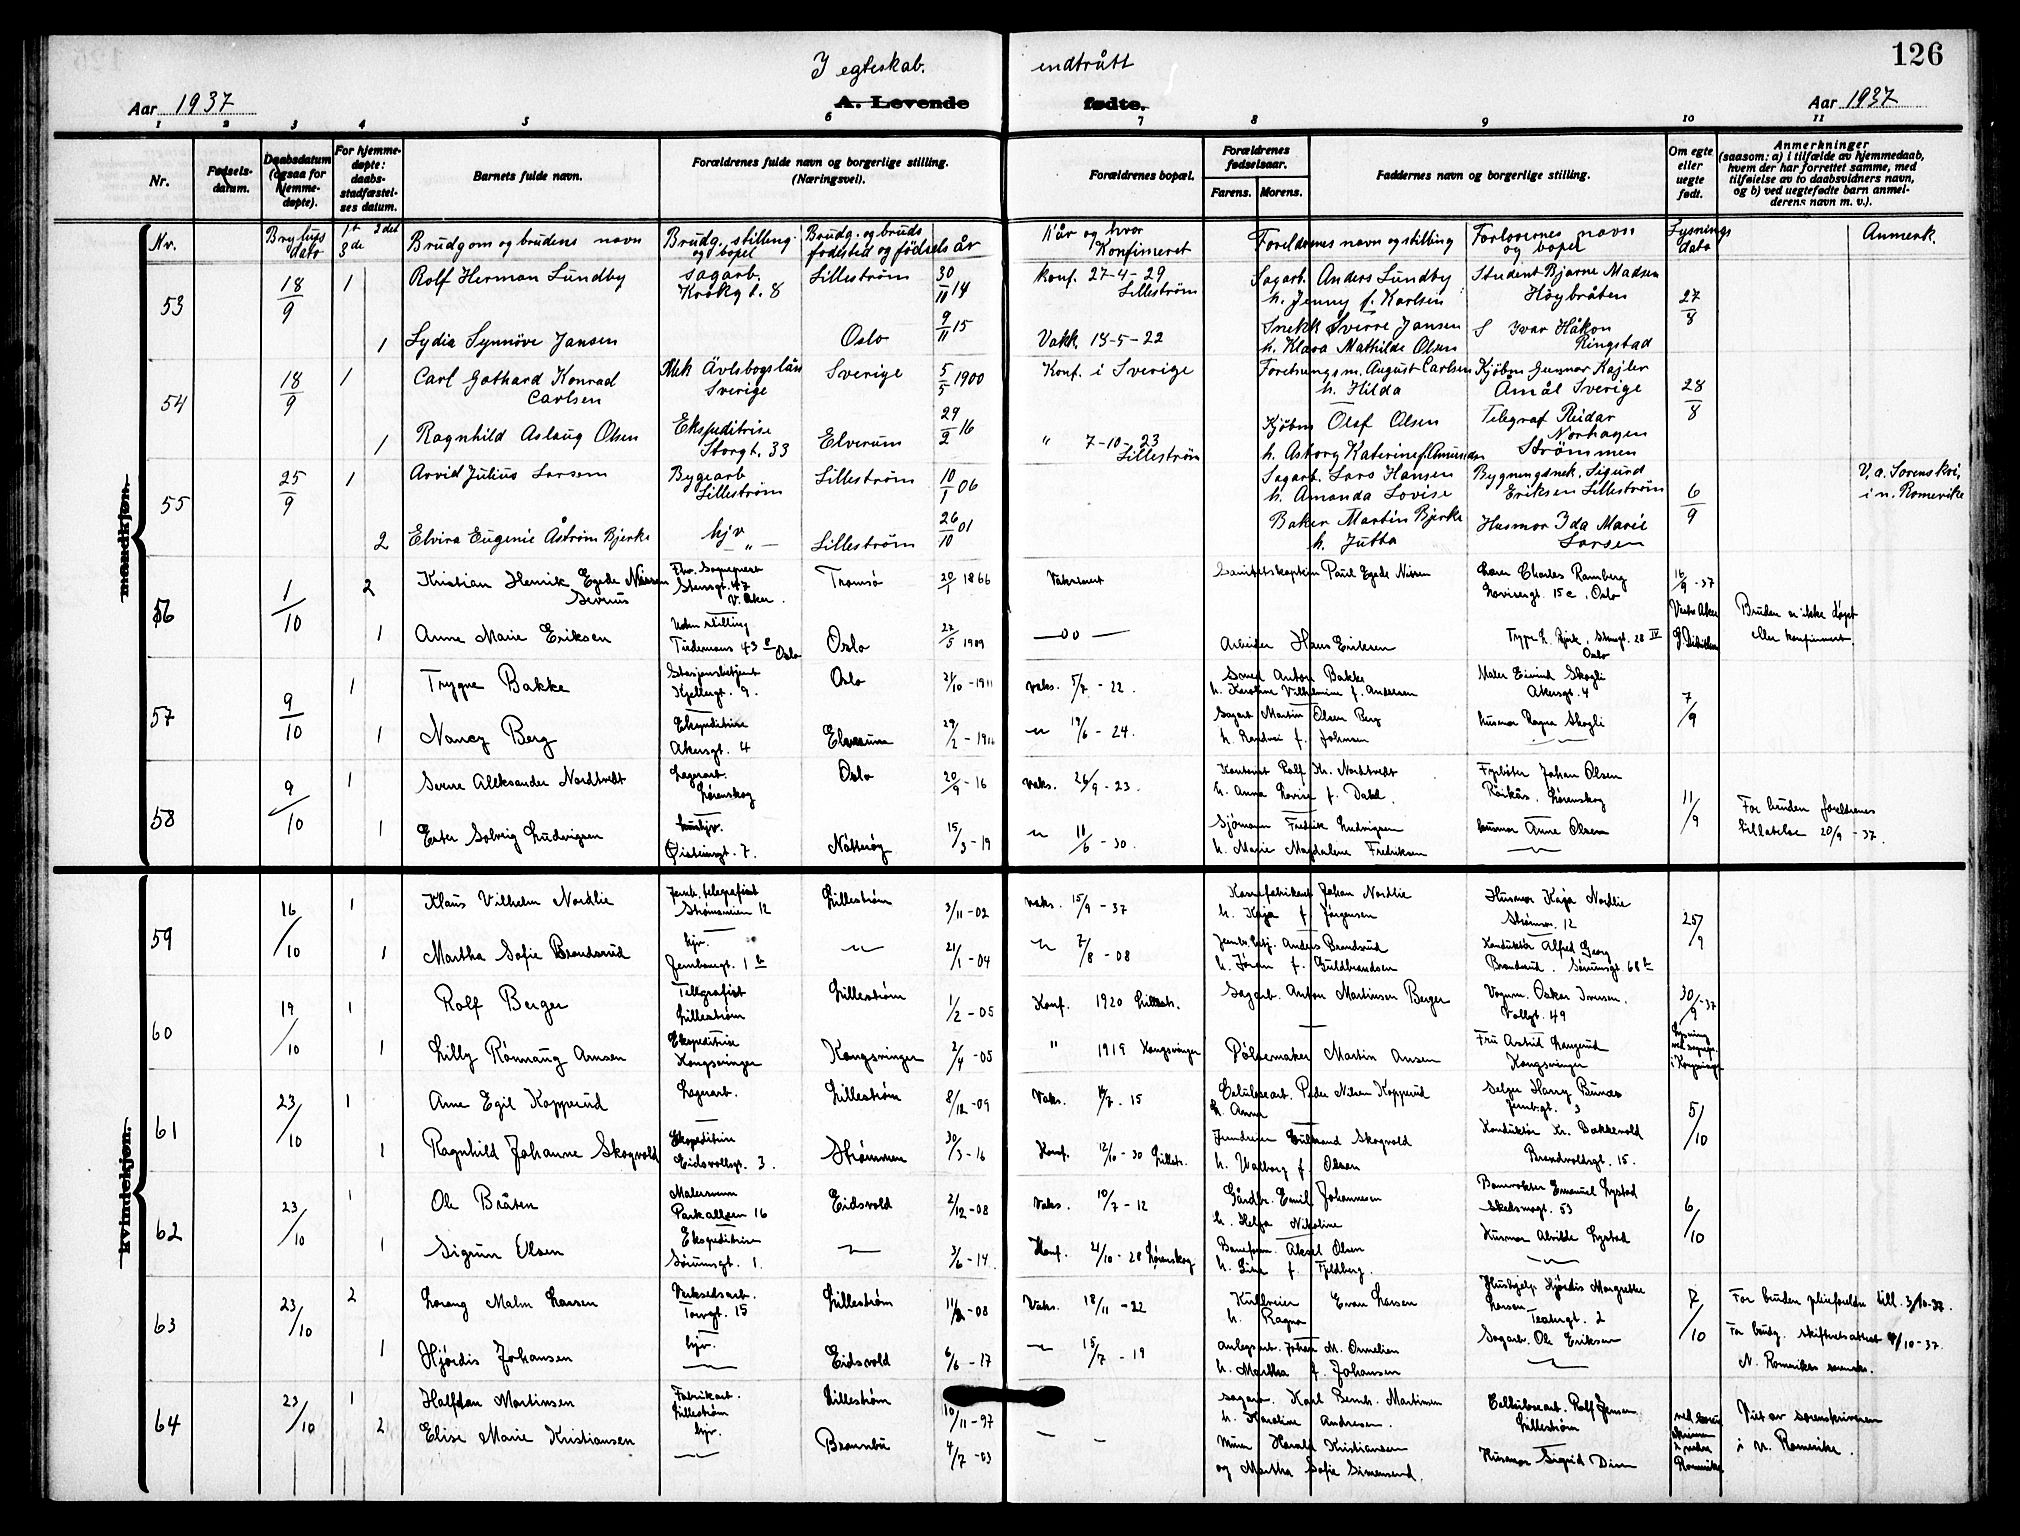 126
I egteskab. indtrått
Aar 1937 A. Levende fødte. Aar 1937
1 2 3 4 5 6 7 8 9 10 11
Nr.
Fødselsdatum.
Daabsdatum (ogsaa for hjemmedøpte).
For hjemmedøpte: daabsstadfæstelses datum.
Barnets fulde navn.
Forældrenes fulde navn og borgerlige stilling. (Næringsvei).
Forældrenes bopæl.
Forældrenes fødselsaar.
Farens. Morens.
Faddernes navn og borgerlige stilling.
Om egte eller uegte født.
Anmerkninger
(saasom: a) i tilfælde av hjemmedaab, hvem der har forrettet samme, med tilføielse av to daabsvidners navn, og b) ved uegtefødte barn anmelderens navn m. v.).
Nr. Bryllups dato Brudgom og brudens navn Brudg. stilling og bopel Brudg. og bruds fødested og fødsels år Når og hvor Konfirmeret Foreldrenes navn og stilling Forlovernes navn og bopel Lysnings dato Anmerk.
mandkjøn.
53 18/9 1 Rolf Herman Lundby Sagarb. Krokgt. 8 Lillestrøm 30/11 14 Konf. 27-4-29 Lillestrøm Sagarb. Anders Lundby h. Jenny f. Karlsen Student Bjarne Madsen Høybråten 27/8
1 Lydia Synnøve Jansen Oslo 9/11 15 Vakk. 13-5-22 Snekk Sverre Jansen h. Klara Mathilde Olsen S Ivar Håkon Ringstad
54 18/9 1 Carl Gothard Konrad Carlsen Mek Ävlsbogslän Sverige Sverige 5/5 1900 Konf. i Sverige Foretningsm. August Carlsen h. Hilda Kjøbm Gunnar Kajler Åmål Sverige 28/8
1 Ragnhild Aslaug Olsen Ekspeditrise Storgt. 33 Elverum 29/2 16 " 7-10-23 Lillestrøm Kjøbm Olaf Olsen h. Asborg Katerine f. Amundsen Telegraf Reidar Norhagen Strømmen
55 25/9 1 Arvid Julius Larsen Bygearb Lillestrøm Lillestrøm 10/1 06 Sagarb. Lars Hansen h. Amanda Lovise Bygningsnek. Sigurd Eriksen Lillestrøm 6/9 V. a. Sorenskri. i n. Romerike
2 Elvira Eugenie Åstrøm Bjerke hjv — " — Lillestrøm 26/10 01 Baker Martin Bjerke h. Jutta Husmor Ida Marie Larsen
56 1/10 2 Kristian Henrik Egede Nissen Severus Fhv. Sogneprest Stensgt. 47 V. Aker Tromsø 20/1 1866 Vaksinert Sanitetskaptein Paul Egede Nissen Lærer Charles Ramberg Lovisengt. 15c, Oslo 16/9-37 Vestre Aker Bruden er ikke døpt eller konfirmert.
1 Anne Marie Eriksen Uden stilling Tidemans 43 Oslo Oslo 27/5 1909 —oo— Arbeider Hans Eriksen
57 9/10 1 Trygve Bakke Stasjonsbetjent Kjellergt. 9. Oslo 21/10-1911 Vaks. 5/7-22. Smed Anton Bakke h. Karoline Vilhelmine f. Andersen Maler Eivind Skogli Akersgt. 4 7/9
1 Nancy Berg Ekspeditrise Akersgt. 4 Elverum 29/2-1916 19/6-24. Sagarb Martin Olsen Berg h. Randvei f. Johnsen Husmor Ragna Skogli
58 9/10 1 Sverre Alleksander Nordtvedt Lagerarb. Lørenskog Oslo 20/9-16 Vaks. 26/9-23. Kontorist Rolf Kr. Nordtvedt h. Anna Lovise f. Dahl. Fyrbøter Johan Olsen Røikås. Lørenskog 11/9 For bruden foreldrenes tillatelse 20/9-37.
1 Ester Solveig Ludvigsen hushjv. Øisteinsgt. 7. Nøtterøy 15/3-19 11/6-30. Sjømann Fredrik Ludvigsen h. Marie Magdalene Fredriksen husmor Anne Olsen
kvindekjøn.
59 16/10 1 Klaus Vilhelm Nordlie Jernb. telegrafist Strømsveien 12 Lillestrøm 3/11-02 Vaks. 15/9-37 Kassefabrikant Johan Nordlie h. Kaja f Jørgensen Husmor Kaja Nordlie Strømsv. 12 25/9
1 Martha Sofie Brandsrud hjv. Jernbanegt. 1 b 21/1-04 7/8-08 Jernb. betj. Anders Brandsrud h. Jøran f. Guldbrandsen Konduktør Alfred Georg Brandsrud. Sørumsgt 68 b
60 19/10 1 Rolf Berger Tellegrafist Lillestrøm Lillestrøm 1/2-05 Konf. 1920 Lillestr. Sagarb. Anton Martinsen Berger Vognm. Oskar Iversen. Vollgt. 49 30/9-37
1 Lilly Rønnaug Arnsen Ekspeditrise Kongsvinger Kongsvinger 2/4-05 " 1919 Kongsvinger Pølsemaker Martin Ansen Fru Astrid Langerud Kongsvinger Lysning ved sognepr. i Kongsvinger
61 23/10 1 Arne Egil Kopperud Lagerarb. Lillestrøm 8/12-09 Vaks. 7-15 Celulosearb. Peder Nilsen Kopperud h. Anna Selger Harry Bunæs Jernbgt. 3 5/10
1 Ragnhild Johanne Skogvold Ekspeditrise Eidsvollsgt. 3. Strømmen 30/3-16 Konf. 12/10-30 Lillestr. Gulbrand Skogvold h. Valborg f. Olsen Konduktør Kr. Bakkevold Brandvoldsgt. 15.
62 23/10 1 Ole Bråten Malersvenn Parkalleen 16 Eidsvold 2/12-08 Vaks. 10/7-12 Gårdbr. Emil Johannesen h. Helga Nikoline Banevokter Emanuel Lystad Skedsmogt. 53 6/10
1 Sigrun Olsen Ekspeditrise Sørumsgt. 1. 3/6-14 Konf. 21/10-28 Lørenskog Baneform. Aksel Olsen h. Lina f. Fjeldberg. Husmor Alvilde Lystad
63 23/10 2 Lorang Malm Larsen Verkstedsarb. Torvgt. 15 Lillestrøm 11/2-08 Vaks. 18/11-22 Kullkeier Evan Larsen h. Ragna Hushjelp Hjørdis Margrethe Larsen Teatergt. 2 7/10 For bruden pleieforeldre till. 3/10-37.
1 Hjørdis Johansen hjv. Eidsvold 6/6-17 15/7-19 Anlegsarb. Johan M. Ornelien h. Martha f. Johansen Sagarb. Ole Eriksen For brudg. skifteattest 4/10-37. N. Romerikes sorensk.
64 23/10 1 Halfdan Martinsen Fabrikarb. Lillestrøm Lillestrøm 10/11-97 Sagarb. Karl Bernh. Martinsen h. Karoline Andresen. Cellulosearb. Rolf Jensen Lillestrøm ved soren skriveren i nedre Romerike Viet av sorenskriveren i N. Romerike.
2 Elise Marie Kristiansen hjv. 4/7-03 Murer Harald Kristiansen og Martha Sofie Simensend. Husmor Sigrid Dien